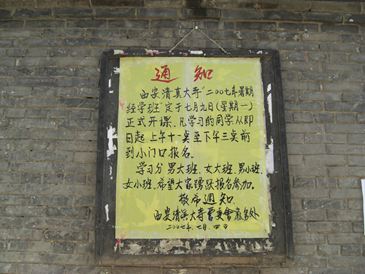 通知
西安清真大寺"二〇〇七年暑期
经学班"定于七月九日(星期一)
正式开课,凡学习的同学从即
日起上午十一点至下午三点前
到小门口报名。
学习分男大班、女大班、男小班、
女小班,希望大家踊跃报名参加。
敬希通知
西安清真大寺管委会
二〇〇七年七月四日